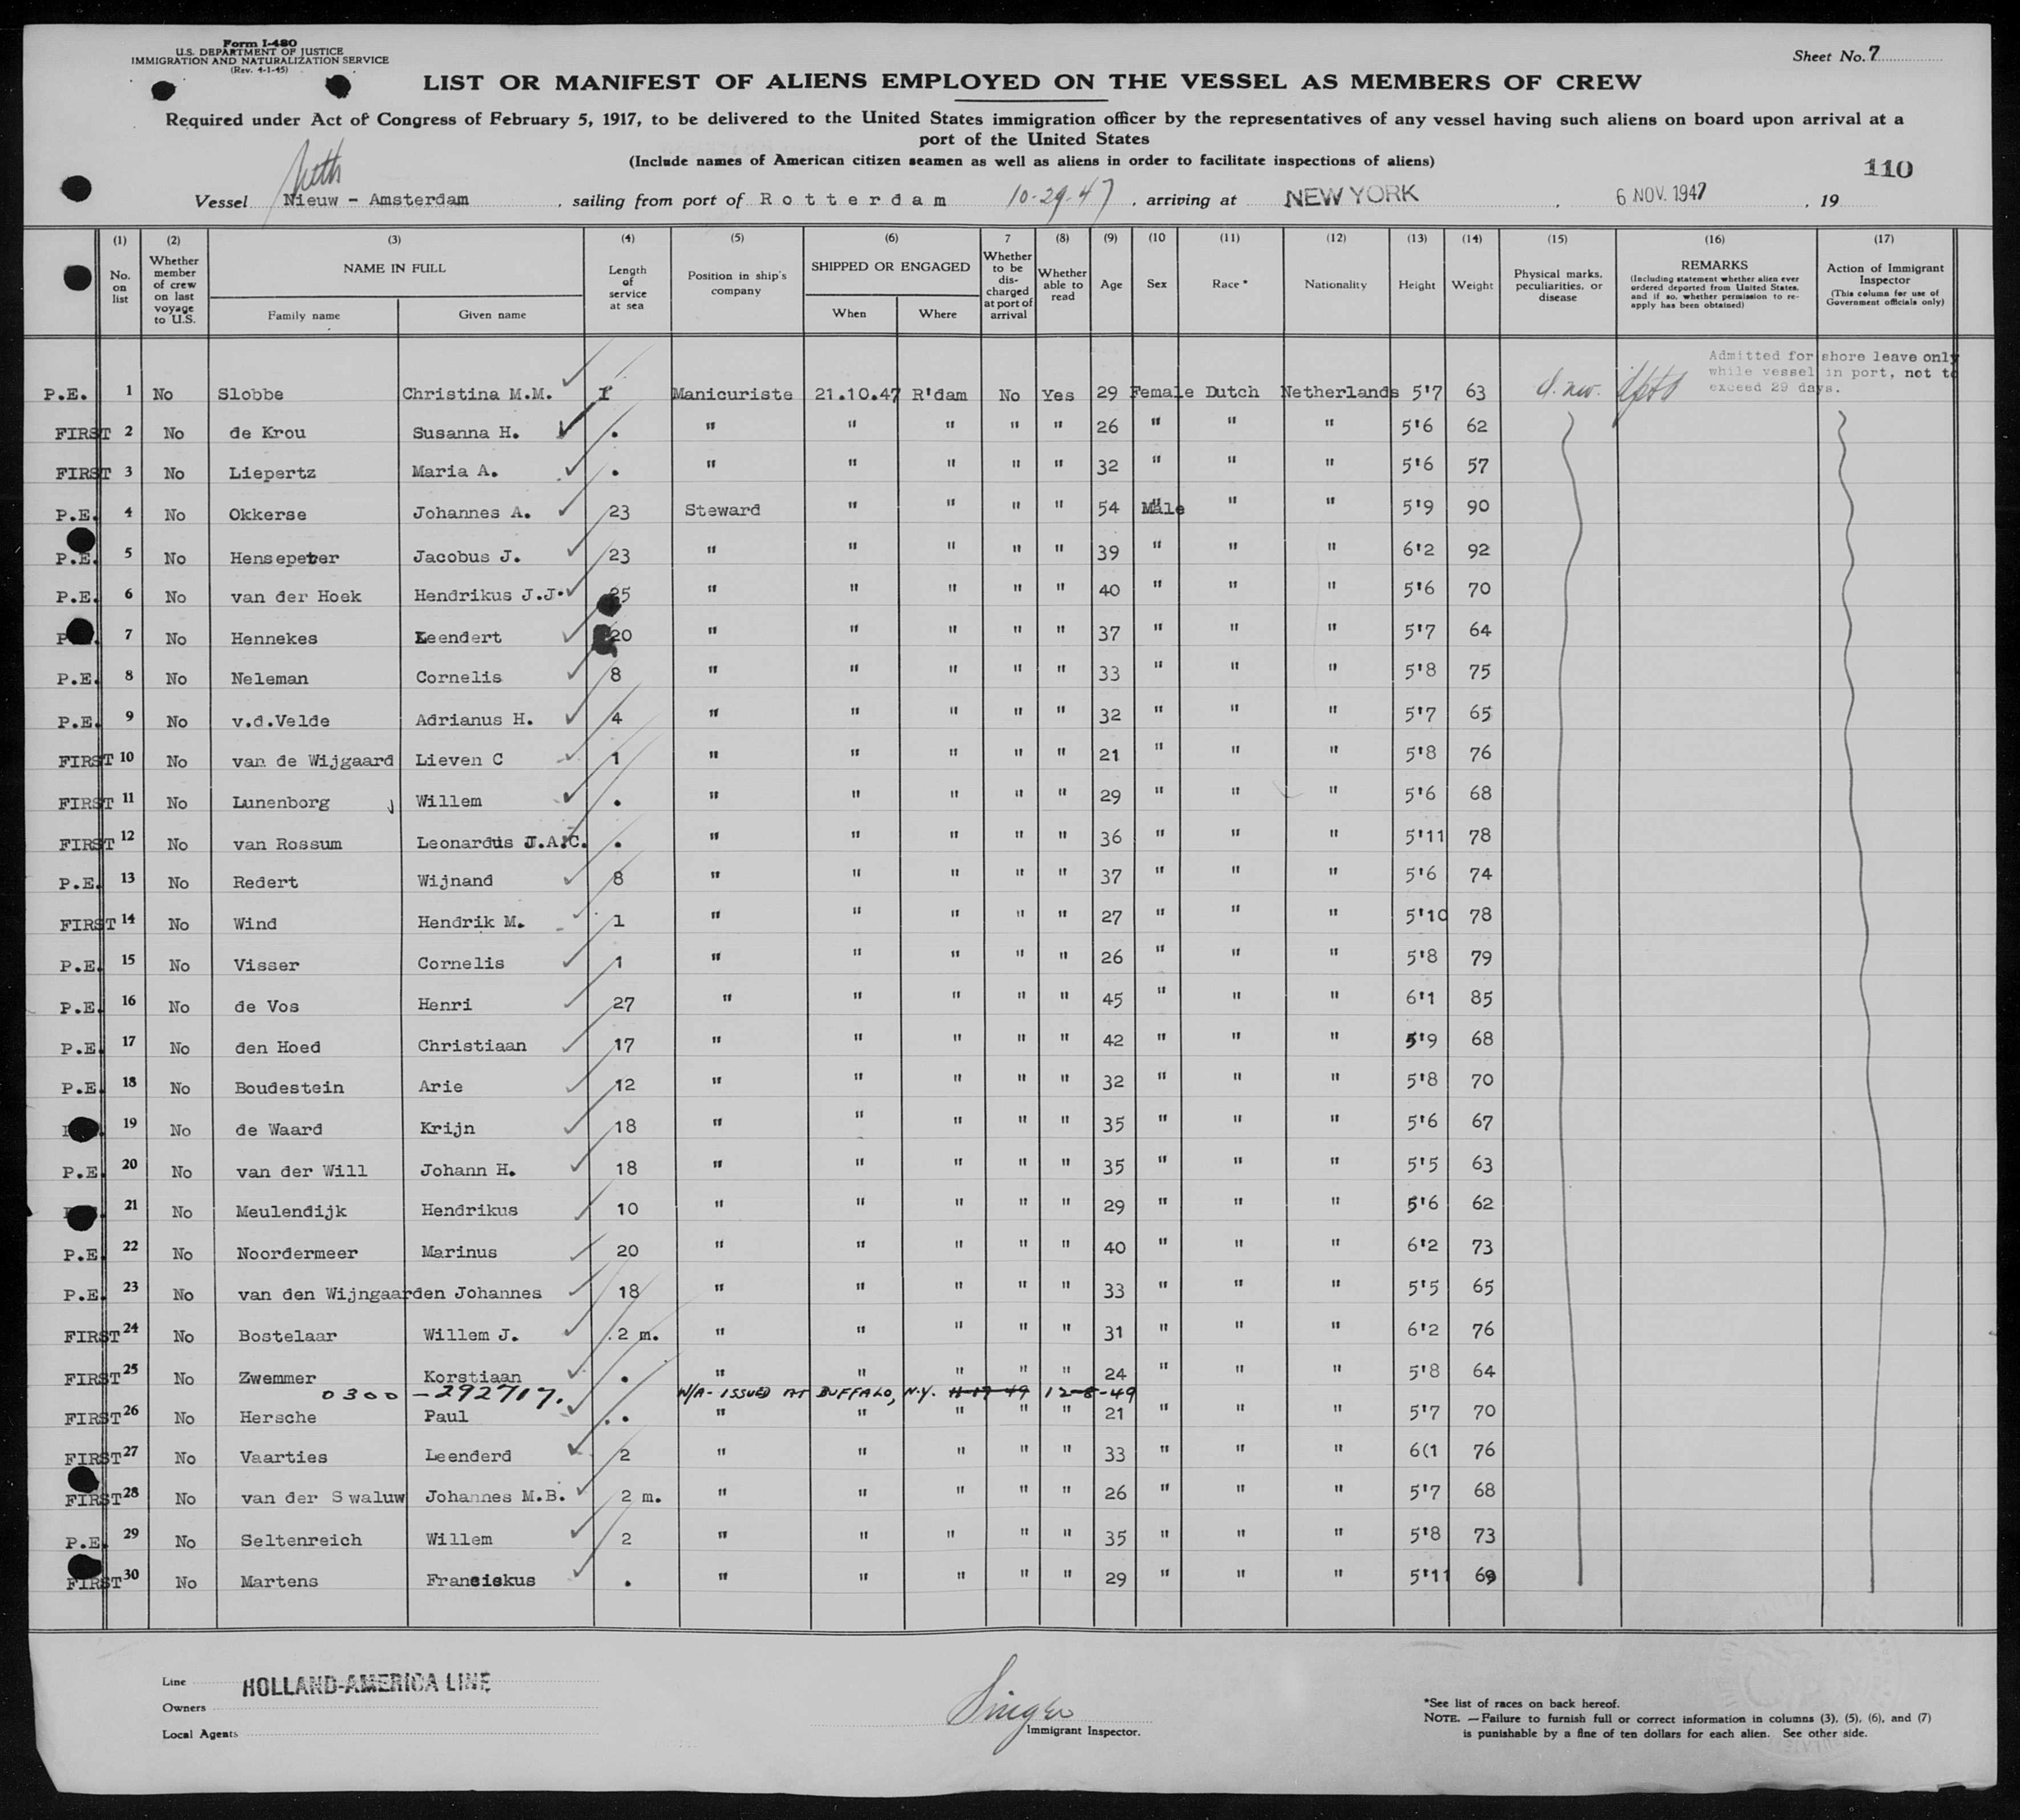 Form I-480
U.S. DEPARTMENT OF JUSTICE
IMMIGRATION AND NATURALIZATION SERVICE
(Rev. 4-1-45)
Sheet No. 7
LIST OR MANIFEST OF ALIENS EMPLOYED ON THE VESSEL AS MEMBERS OF CREW
Required under Act of Congress of February 5, 1917, to be delivered to the United States immigration officer by the representatives of any vessel having such aliens on board upon arrival at a
port of the United States
(Include names of American citizen seamen as well as aliens in order to facilitate inspections of aliens)
110
Neth
Vessel Nieuw - Amsterdam, sailing from port of Rotterdam 10-29-47, arriving at NEW YORK, 6 NOV. 1947, 19
(1) No. on list
(2) Whether member of crew on last voyage to U.S.
(3) NAME IN FULL Family name Given name
(4) Length of service at sea
(5) Position in ship's company
(6) SHIPPED OR ENGAGED When Where
7 Whether to be discharged at port of arrival
(8) Whether able to read
(9) Age
(10 Sex
(11) Race *
(12) Nationality
(13) Height
(14) Weight
(15) Physical marks, peculiarities, or disease
(16) REMARKS (Including statement whether alien ever ordered deported from United States, and if so, whether permission to re-apply has been obtained)
(17) Action of Immigrant Inspector (This column for use of Government officials only)
Admitted for shore leave only
while vessel in port, not to
exceed 29 days.
P.E. 1 No Slobbe Christina M.M. 1 Manicuriste 21.10.47 R'dam No Yes 29 Female Dutch Netherlands 5'7 63
FIRST 2 No de Krou Susanna H. . " " " " " 26 " " " 5'6 62
FIRST 3 No Liepertz Maria A. . " " " " " 32 " " " 5'6 57
P.E. 4 No Okkerse Johannes A. 23 Steward " " " " 54 Male " " 5'9 90
P.E. 5 No Hensepeter Jacobus J. 23 " " " " " 39 " " " 6'2 92
P.E. 6 No van der Hoek Hendrikus J.J. 25 " " " " " 40 " " " 5'6 70
P. 7 No Hennekes Leendert 20 " " " " " 37 " " " 5'7 64
P.E. 8 No Neleman Cornelis 8 " " " " " 33 " " " 5'8 75
P.E. 9 No v.d.Velde Adrianus H. 4 " " " " " 32 " " " 5'7 65
FIRST 10 No van de Wijgaard Lieven C 1 " " " " " 21 " " " 5'8 76
FIRST 11 No Lunenborg Willem . " " " " " 29 " " " 5'6 68
FIRST 12 No van Rossum Leonardus J.A.C. . " " " " " 36 " " " 5'11 78
P.E. 13 No Redert Wijnand 8 " " " " " 37 " " " 5'6 74
FIRST 14 No Wind Hendrik M. 1 " " " " " 27 " " " 5'10 78
P.E. 15 No Visser Cornelis 1 " " " " " 26 " " " 5'8 79
P.E. 16 No de Vos Henri 27 " " " " " 45 " " " 6'1 85
P.E 17 No den Hoed Christiaan 17 " " " " " 42 " " " 5'9 68
P.E 18 No Boudestein Arie 12 " " " " " 32 " " " 5'8 70
19 No de Waard Krijn 18 " " " " " 35 " " " 5'6 67
P.E 20 No van der Will Johann H. 18 " " " " " 35 " " " 5'5 63
21 No Meulendijk Hendrikus 10 " " " " " 29 " " " 5'6 62
P.E 22 No Noordermeer Marinus 20 " " " " " 40 " " " 6'2 73
P.E 23 No van den Wijngaarden Johannes 18 " " " " " 33 " " " 5'5 65
FIRST 24 No Bostelaar Willem J. 2 m. " " " " " 31 " " " 6'2 76
FIRST 25 No Zwemmer Korstiaan . " " " " " 24 " " " 5'8 64
0300 - 292717. W/A- ISSUED AT BUFFALO, N.Y. 11-17-49 12-8-49
FIRST 26 No Hersche Paul . " " " " " 21 " " " 5'7 70
FIRST 27 No Vaarties Leenderd 2 " " " " " 33 " " " 6(1 76
FIRST 28 No van der Swaluw Johannes M.B. 2 m. " " " " " 26 " " " 5'7 68
P.E 29 No Seltenreich Willem 2 " " " " " 35 " " " 5'8 73
FIRST 30 No Martens Franciskus . " " " " " 29 " " " 5'11 69
Line HOLLAND-AMERICA LINE
Owners
Local Agents
Singer
Immigrant Inspector.
*See list of races on back hereof.
NOTE. — Failure to furnish full or correct information in columns (3), (5), (6), and (7)
is punishable by a fine of ten dollars for each alien. See other side.